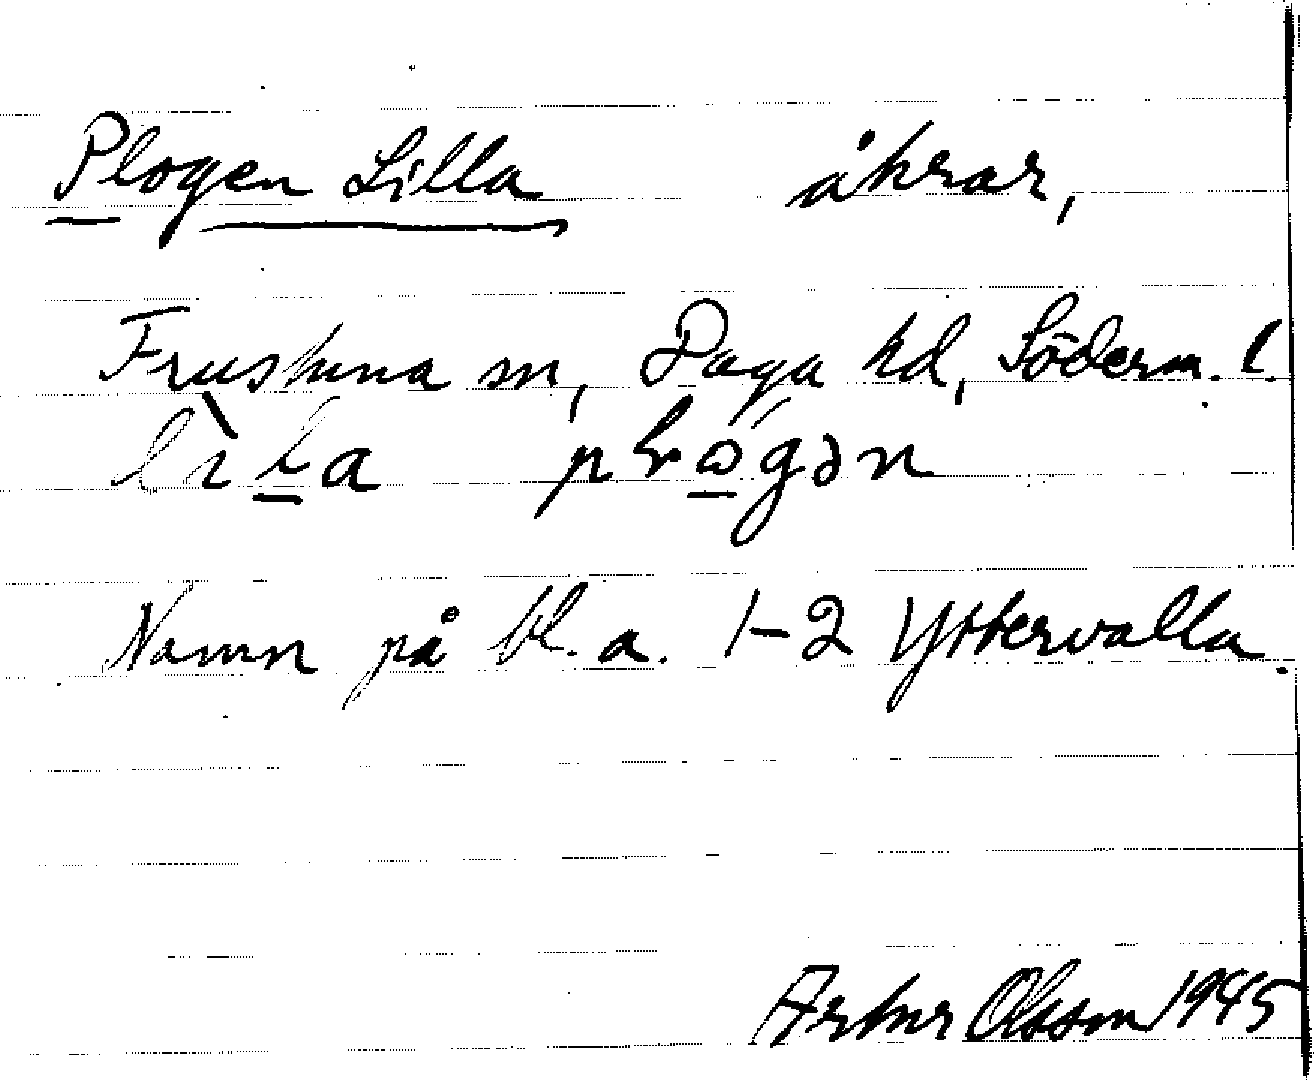 Plogen Lilla åkrar,
Frustuna sn, Daga hd, Söderm. l.
Namn på bl. a. 1-2 Yttervalla.
Artur Olsson 1945